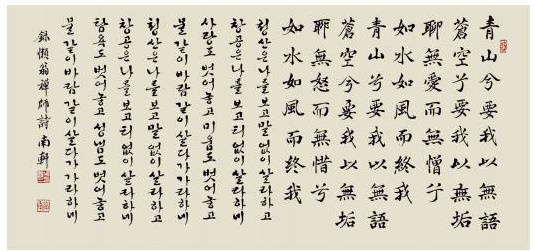 青山兮要我以無語
蒼空兮要我以無垢
聊無愛而無憎兮
如水如風而終我
青山兮要我以無語
蒼空兮要我以無垢
聊無怒而無惜兮
如水如風而終我
청산은 나를 보고 말 없이 살라하고
창공은 나를 보고 티 없이 살라하네
사랑도 벗어놓고 미움도 벗어놓고
물같이 바람같이 살다가 가라하네
청산은 나를 보고 말 없이 살라하고
창공은 나를 보고 티 없이 살라하네
탐욕도 벗어놓고 성냄도 벗어놓고
물같이 바람같이 살다가 가라하네
錄懶翁禪師詩 南軒